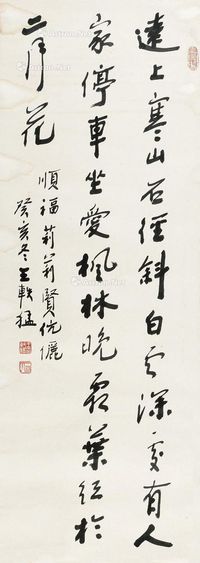 遠上寒山石徑斜白雲深處有人
家停車坐愛楓林晚霜葉紅於
二月花
順福莉莉賢伉儷
癸亥冬王軼猛